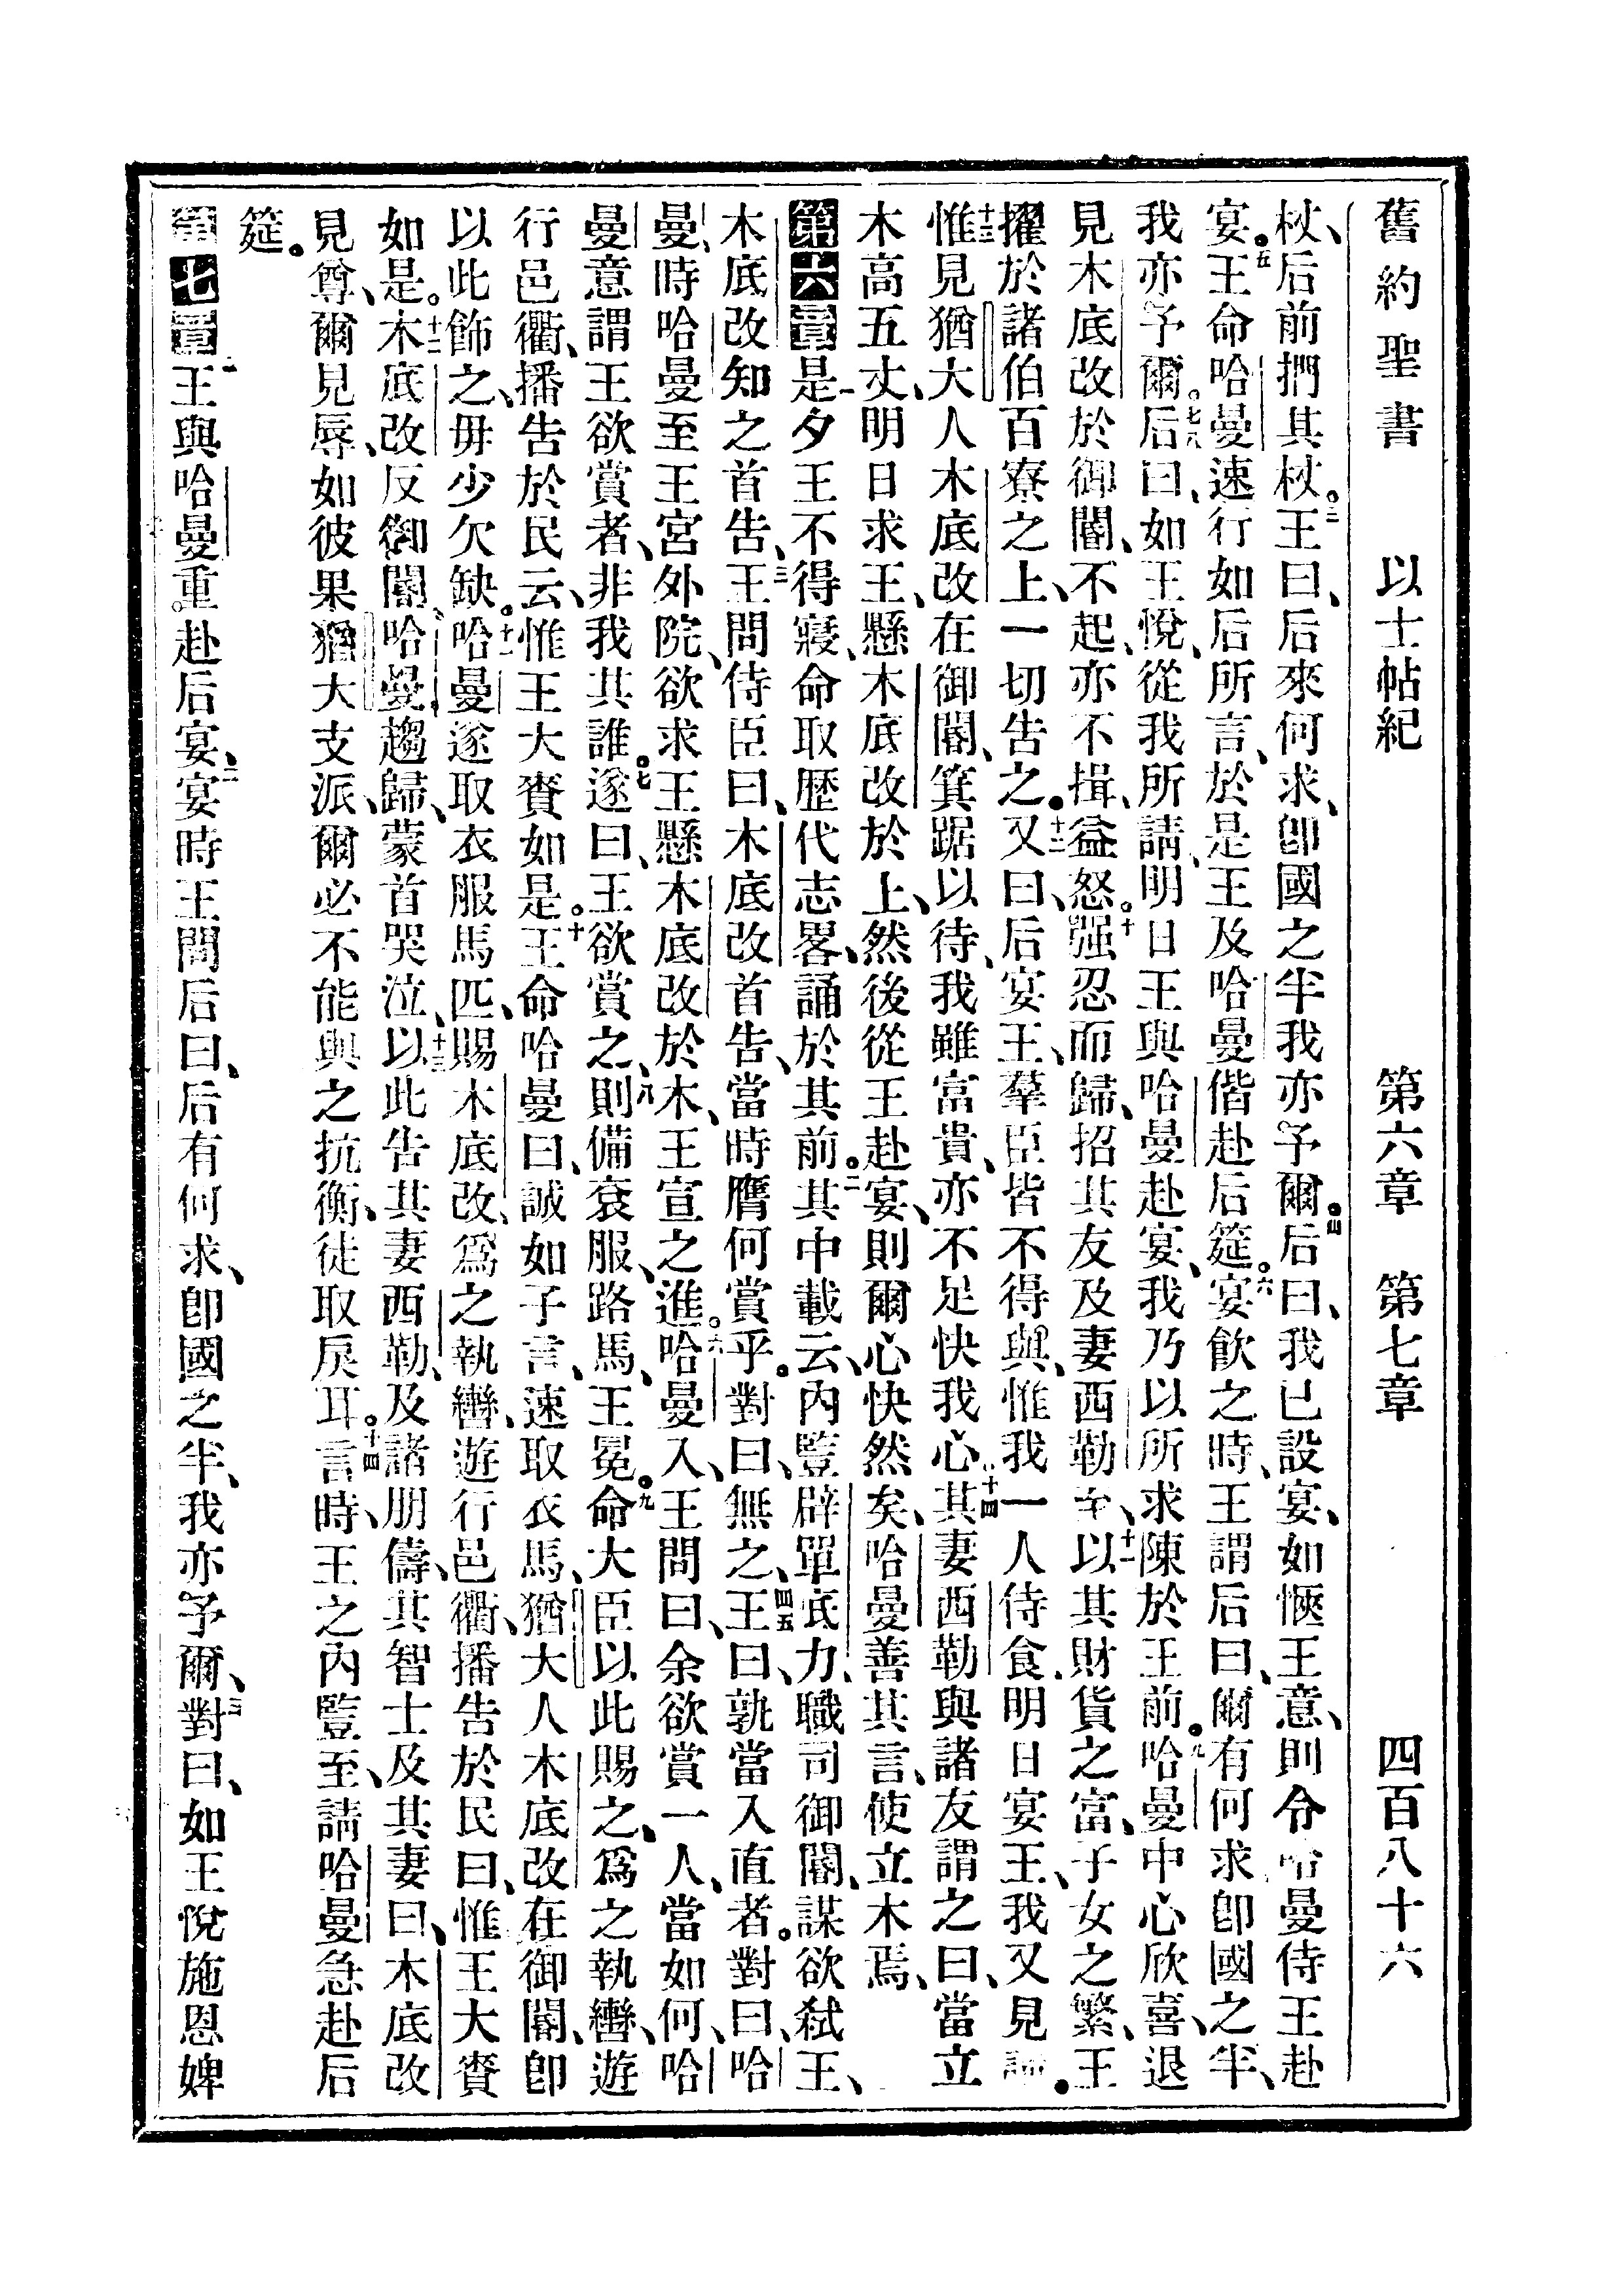 舊約聖書 以士帖紀 第六章 第七章 四百八十六
杖、后前捫其杖。三王曰、后來何求、卽國之半我亦予爾。四后曰、我已設宴、如愜王意、則令哈曼侍王赴
宴。五王命哈曼速行如后所言、於是王及哈曼偕赴后筵。六宴飮之時、王謂后曰、爾有何求卽國之半、
我亦予爾。七八后曰、如王悅、從我所請、明日王與哈曼赴宴、我乃以所求陳於王前。九哈曼中心欣喜、退
見木底改於御閽、不起、亦不揖、益怒。十强忍而歸、招其友及妻西勒至、十一以其財貨之富、子女之繁、王
擢於諸伯百寮之上、一切告之。十二又曰、后宴王、羣臣皆不得與、惟我一人侍食、明日宴王、我又見請。
十三惟見猶大人木底改在御閽、箕踞以待、我雖富貴、亦不足快我心。十四其妻西勒與諸友謂之曰、當立
木高五丈、明日求王、懸木底改於上、然後從王赴宴、則爾心快然矣、哈曼善其言、使立木焉、
第六章一是夕王不得寢、命取歷代志畧、誦於其前。二其中載云、內豎辟單底力、職司御閽、謀欲弒王、
木底改知之首告、三王問侍臣曰、木底改首告、當時膺何賞乎。對曰、無之、四五王曰、孰當入直者。對曰、哈
曼、時哈曼至王宮外院、欲求王懸木底改於木、王宣之進。六哈曼入、王問曰、余欲賞一人、當如何、哈
曼意謂王欲賞者、非我其誰。七遂曰、王欲賞之、八則備袞服、路馬、王冕。九命大臣以此賜之、爲之執轡、遊
行邑衢、播告於民云、惟王大賚如是。十王命哈曼曰、誠如子言、速取衣馬、猶大人木底改在御閽、卽
以此飾之、毋少欠缺。十一哈曼遂取衣服馬匹、賜木底改、爲之執轡、遊行邑衢、播告於民曰、惟王大賚
如是。十二木底改反御閽、哈曼趨歸、蒙首哭泣、十三以此告其妻西勒、及諸朋儔、其智士及其妻曰、木底改
見尊、爾見辱、如彼果猶大支派、爾必不能與之抗衡、徒取戾耳。十四言時、王之內豎至、請哈曼急赴后
筵。
第七章一王與哈曼重赴后宴、二宴時王問后曰、后有何求、卽國之半、我亦予爾、三對曰、如王悅施恩婢